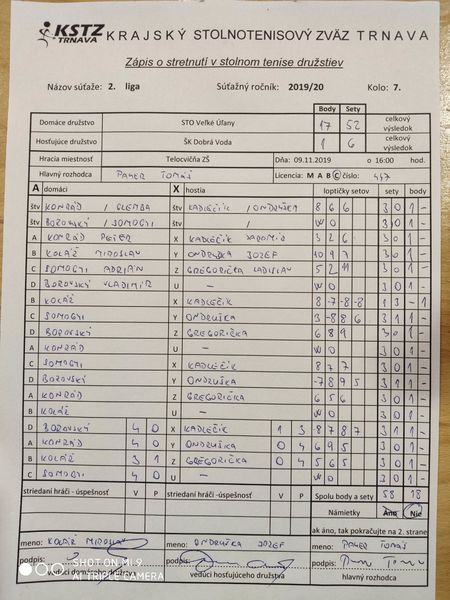 KSTZ TRNAVA KRAJSKÝ STOLNOTENISOVÝ ZVÄZ TRNAVA
Zápis o stretnutí v stolnom tenise družstiev
Názov súťaže: 2. liga Súťažný ročník: 2019/20 Kolo: 7.
Body Sety
Domáce družstvo STO Veľké Úľany 17 52 celkový výsledok
Hosťujúce družstvo ŠK Dobrá Voda 1 6 celkový výsledok
Hracia miestnosť Telocvičňa ZŠ Dňa: 09.11.2019 o 16:00 hod.
Hlavný rozhodca PAHER TOMÁŠ Licencia: M A B C číslo: 447
A domáci X hostia loptičky setov sety body
štv KONRÁD / CLEMBA štv KADLEČÍK / ONDRUŠKA 8 6 6 3 0 1 -
štv BOROVSKÝ / SOMOGYI štv / WO 3 0 1 -
A KONRÁD PETER X KADLEČÍK JAROMÍR 3 2 6 3 0 1 -
B KOLÁŽ MIROSLAV Y ONDRUŠKA JOZEF 10 9 7 3 0 1 -
C SOMOGYI ADRIÁN Z GREGORIČKA LADISLAV 5 2 11 3 0 1 -
D BOROVSKÝ VLADIMÍR U — WO 3 0 1 -
B KOLÁŽ X KADLEČÍK 8 -7 -8 -8 1 3 - 1
C SOMOGYI Y ONDRUŠKA 3 -8 8 6 3 1 1 -
D BOROVSKÝ Z GREGORIČKA 6 8 9 3 0 1 -
A KONRÁD U — WO 3 0 1 -
C SOMOGYI X KADLEČÍK 8 7 7 3 0 1 -
D BOROVSKÝ Y ONDRUŠKA -7 8 9 5 3 1 1 -
A KONRÁD Z GREGORIČKA 6 5 6 3 0 1 -
B KOLÁŽ U — WO 3 0 1 -
D BOROVSKÝ 4 0 X KADLEČÍK 1 3 8 7 8 7 3 1 1 -
A KONRÁD 4 0 Y ONDRUŠKA 0 4 6 9 5 3 0 1 -
B KOLÁŽ 3 1 Z GREGORIČKA 0 4 5 6 5 3 0 1 -
C SOMOGYI 4 0 U — WO 3 0 1 -
striedaní hráči - úspešnosť V P striedaní hráči -úspešnosť V P Spolu body a sety 58 18
Námietky Áno Nie
ak áno, tak pokračujte na 2. strane
meno: KOLÁŽ MIROSLAV meno: ONDRUŠKA JOZEF meno: PAHER TOMÁŠ
podpis: podpis: podpis:
vedúci domáceho družstva vedúci hosťujúceho družstva hlavný rozhodca
SHOT ON MI 9
AI TRIPLE CAMERA